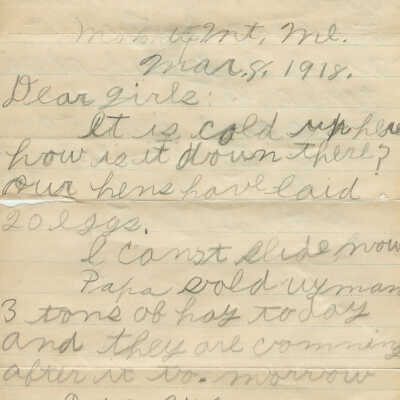 Mt, Me.
Mar. 8, 1918.
Dear girls:
It is cold up here
how is it down there?
Our hens have laid
20 eggs.
I canst slide now
Papa sold
3 tons of hay today
and they are comming
after it to-morrow